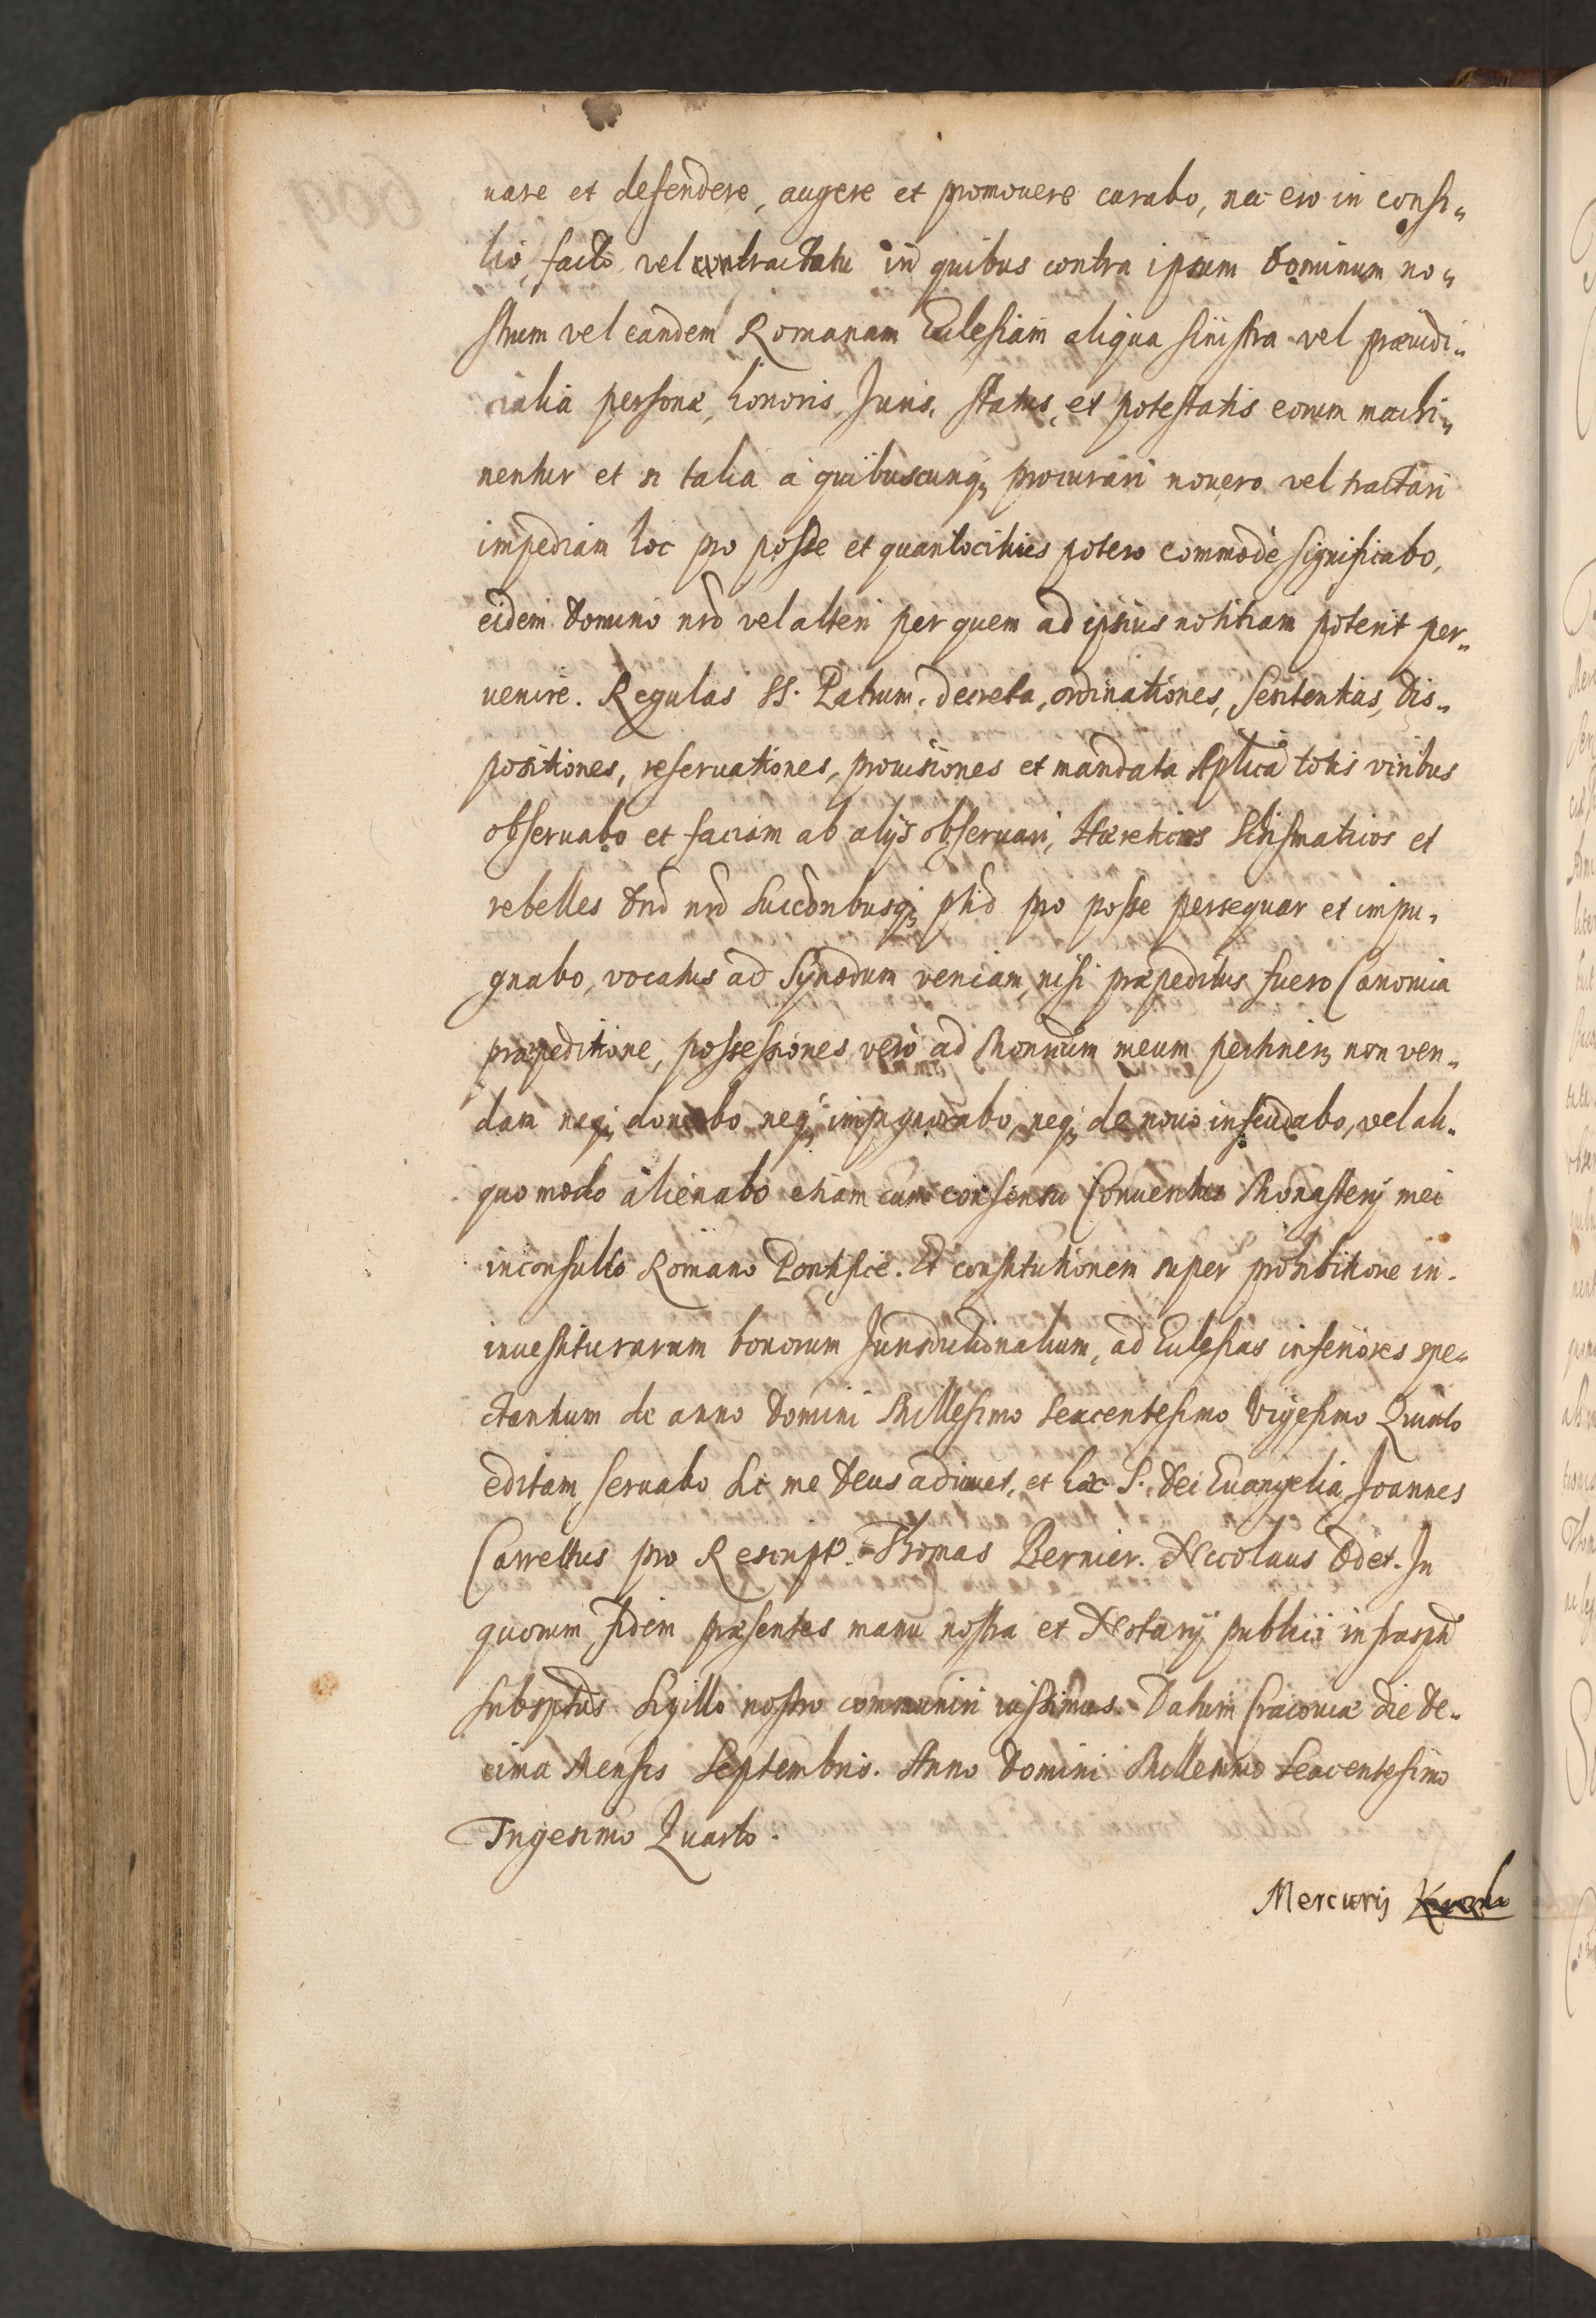 uare et defendere, augere et promouere curabo, nec ero in consi„
lio, facto vel contractatu in quibus contra ipsum Dominum no„
strum vel eandem Romanam Ecclesiam aliqua sinistra vel præiudi„
cialia personæ, honoris, Juris, status, et potestatis eorum machi„
nentur et si talia a quibuscunq; procurari nouero vel tractari
impediam hoc pro posse et quantocitius potero commodè significabo,
eidem Domino nrõ vel alteri per quem ad ipsius notitiam poterit per„
uenire. Regulas SS. Patrum, decreta, ordinationes, sententias, dis„
positiones, reseruationes, prouisiones et mandata Aplica totis viribus
obseruabo et faciam ab alijs obseruari, Hæreticos Schismaticos et
rebelles Dnõ nrõ Succõribusq; phõ pro posse persequar et impu„
gnabo, vocatus ad Synodum veniam, nisi præpeditus fuero Canonica
præpeditione, possessiones verò ad Monrium meum pertinen; non ven„
dam neq; donabo neq; impignorabo, neq; de nouo infeudabo, vel ali„
quo modo alienabo etiam cum consensu Conuentus Monasterij mei
inconsulto Romano Pontifice. Et constitutionem super prohibitione in„
inuestiturarum bonorum Jurisdictionalium, ad Ecclesias inferiores spe„
ctantium de anno Domini Millesimo Sexcentesimo Vigesimo Quinto
editam, seruabo sic me Deus adiuuet, et hæc S. Dei Euangelia Joannes
Carrettus pro Rescript. Thomas Bernier. Nicolaus Odet. In
quorum fidem præsentes manu nostra et Notarij publici infrasptĩ
subsptas Sigillo nostro communiri iussimus. Datum Cracouiæ die De„
cima Mensis Septembris. Anno Domini Millesimo Sexcentesimo
Trigesimo Quarto.
Mercurij